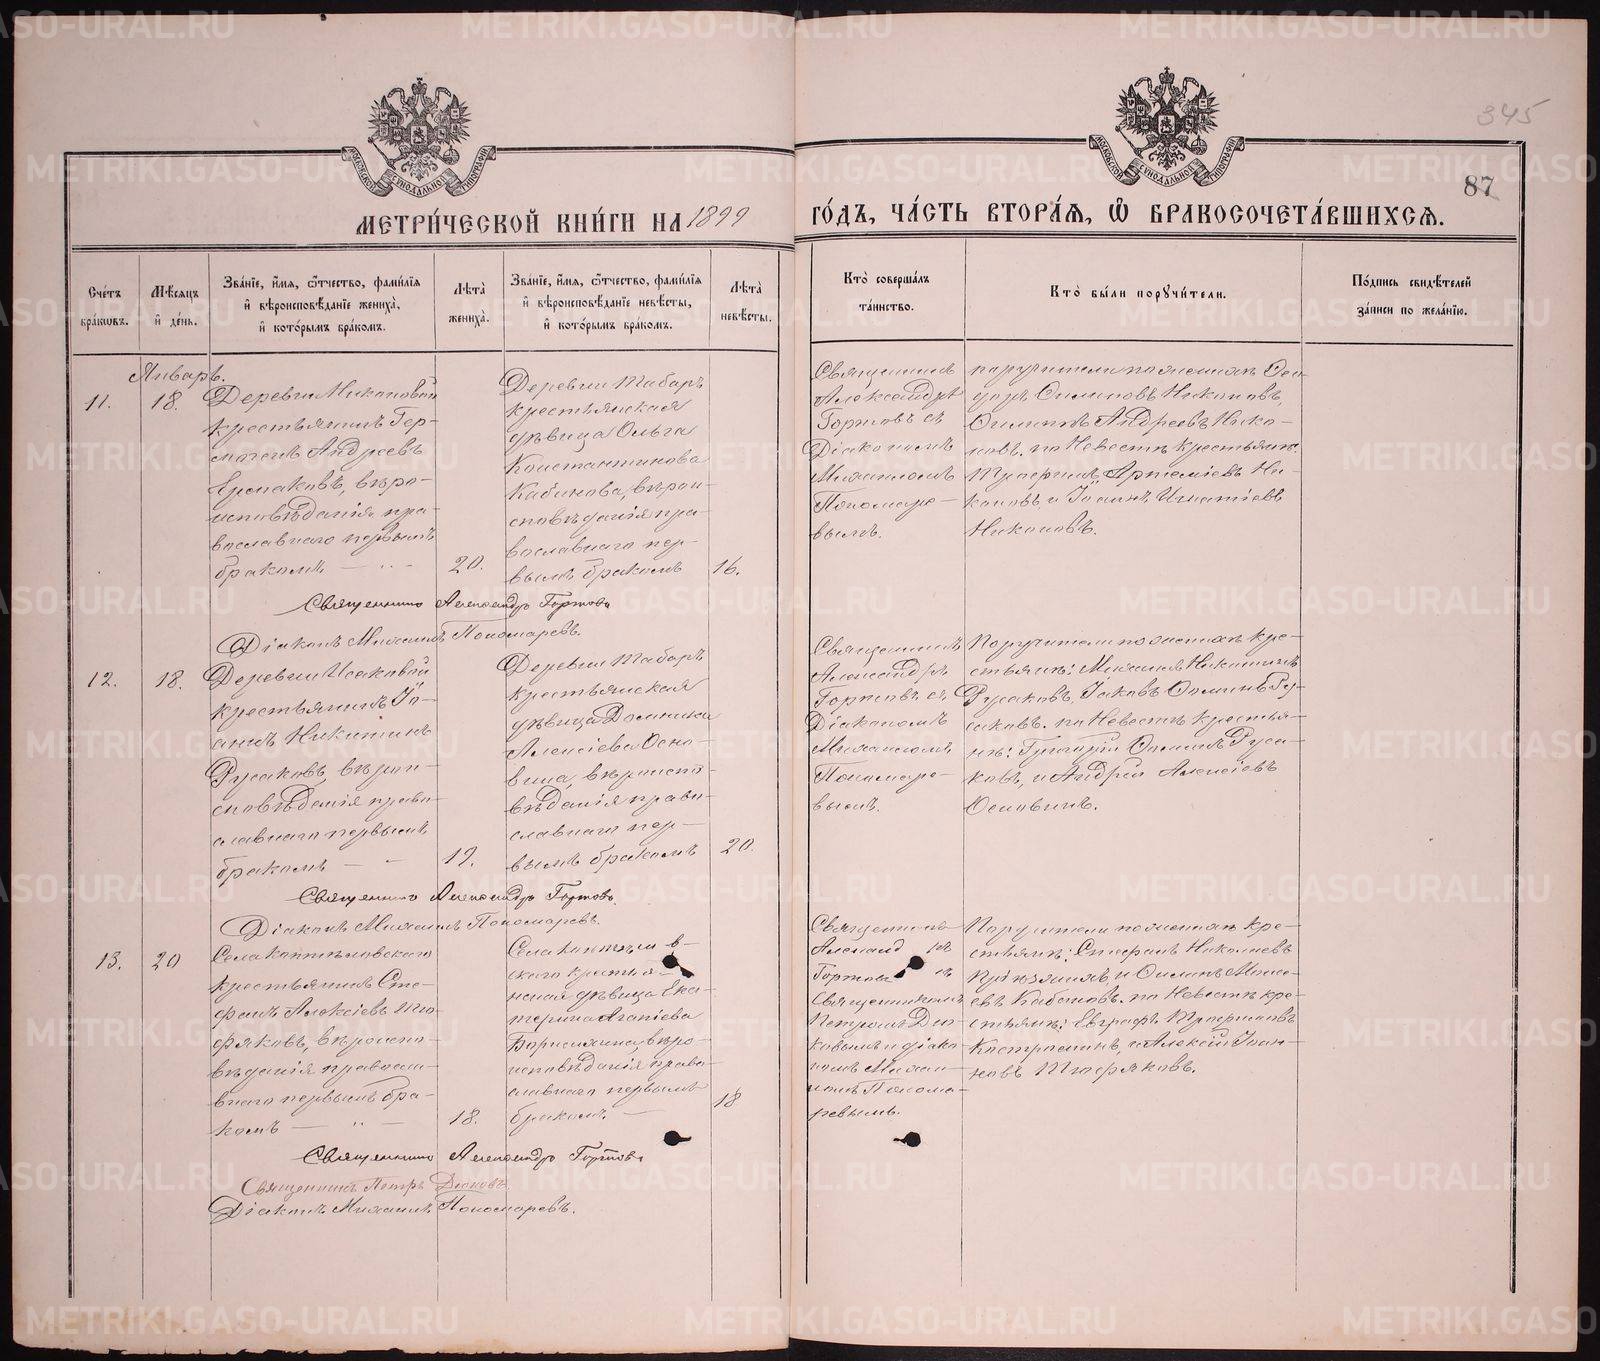 345
87
МЕТРИ́ЧЕСКОЙ КНИ́ГИ НА 1899 ГО́ДЪ, ЧА́СТЬ ВТОРА́Я, Ѡ БРАКОСОЧЕТА́ВШИХСЯ.
Сче́тъ браковъ.
Мѣ́сяцъ и де́нь.
Зва́нїе, и́мя, ѻтчество, фами́лїя и вѣроисповѣ́данїе жениха̀, и кото́рымъ бра́комъ.
Лѣта̀ жениха̀.
Зва́нїе, и́мя, ѻтчество, фами́лїя и вѣроисповѣ́данїе невѣ́сты, и кото́рымъ бра́комъ.
Лѣта̀ невѣ́сты.
Кто̀ соверша́лъ та́инство.
Кто̀ бы́ли поручи́тели.
По́дпись свидѣ́телей за́писи по жела́нїю.
Январь.
11.
18.
Деревни Никоновой
крестьянинъ Гер-
могенъ Андреевъ
Ермаковъ, вѣро-
исповѣданія пра-
вославнаго первымъ
бракомъ
20.
Деревни Табаръ
крестьянская
дѣвица Ольга
Константинова
Кабинова, вѣрои-
сповѣданія пра-
вославнаго пер-
вымъ бракомъ
16.
Священникъ
Александръ
Гортовъ съ
Діакономъ
Михаиломъ
Пономаре-
вымъ.
поручители по женихѣ
Симоновъ Никоновъ,
Филиппъ Андреевъ Нико-
новъ. по Невестѣ крестьяне:
Артеміевъ Ни-
коновъ и Іоаннъ Игнатіевъ
Никоновъ.
Священникъ Александръ Гортовъ
Діаконъ Михаилъ Пономаревъ.
12.
18.
Деревни Исаковой
крестьянинъ Іо-
аннъ Никитинъ
Русаковъ, вѣрои-
сповѣданія право-
славнаго первымъ
бракомъ
19.
Деревни Табаръ
крестьянская
дѣвица Домника
Алексіева Осно-
вина, вѣроиспо-
вѣданія право-
славнаго пер-
вымъ бракомъ
20.
Священникъ
Александръ
Гортовъ съ
Діакономъ
Михаиломъ
Пономаре-
вымъ.
Поручители по женихѣ кре-
стьяне: Михаилъ Никитинъ
Русаковъ, Іаковъ Фоминъ Ру-
саковъ. по Невестѣ крестья-
не: Григорій Фоминъ Руса-
ковъ, и Андрей Алексіевъ
Основинъ.
Священникъ Александръ Гортовъ
Діаконъ Михаилъ Пономаревъ.
13.
20
Села Коптѣловскаго
крестьянинъ Сте-
фанъ Алексіевъ Тю-
фяковъ, вѣроиспо-
вѣданія правосла-
внаго первымъ бра-
комъ
18.
Села Коптѣлов-
скаго крестья-
нская дѣвица Ека-
терина Агапіева
Борисихина, вѣро-
исповѣданія право-
славнаго первымъ
бракомъ.
18
Священникъ
Гортовъ съ
Священникомъ
Петромъ
и діако-
номъ Михаи-
ломъ Понома-
ревымъ.
Поручители по женихѣ кре-
стьяне: Стефанъ Николаевъ
и Филиппъ Моисе-
евъ Кабаковъ. по Невестѣ кре-
стьяне: Евграфъ
Костромины, и Алексѣй Іоан-
новъ Тюфяковъ.
Священникъ Александръ Гортовъ
Священникъ Петръ
Діаконъ Михаилъ Пономаревъ.
METRIKI.GASO-URAL.RU